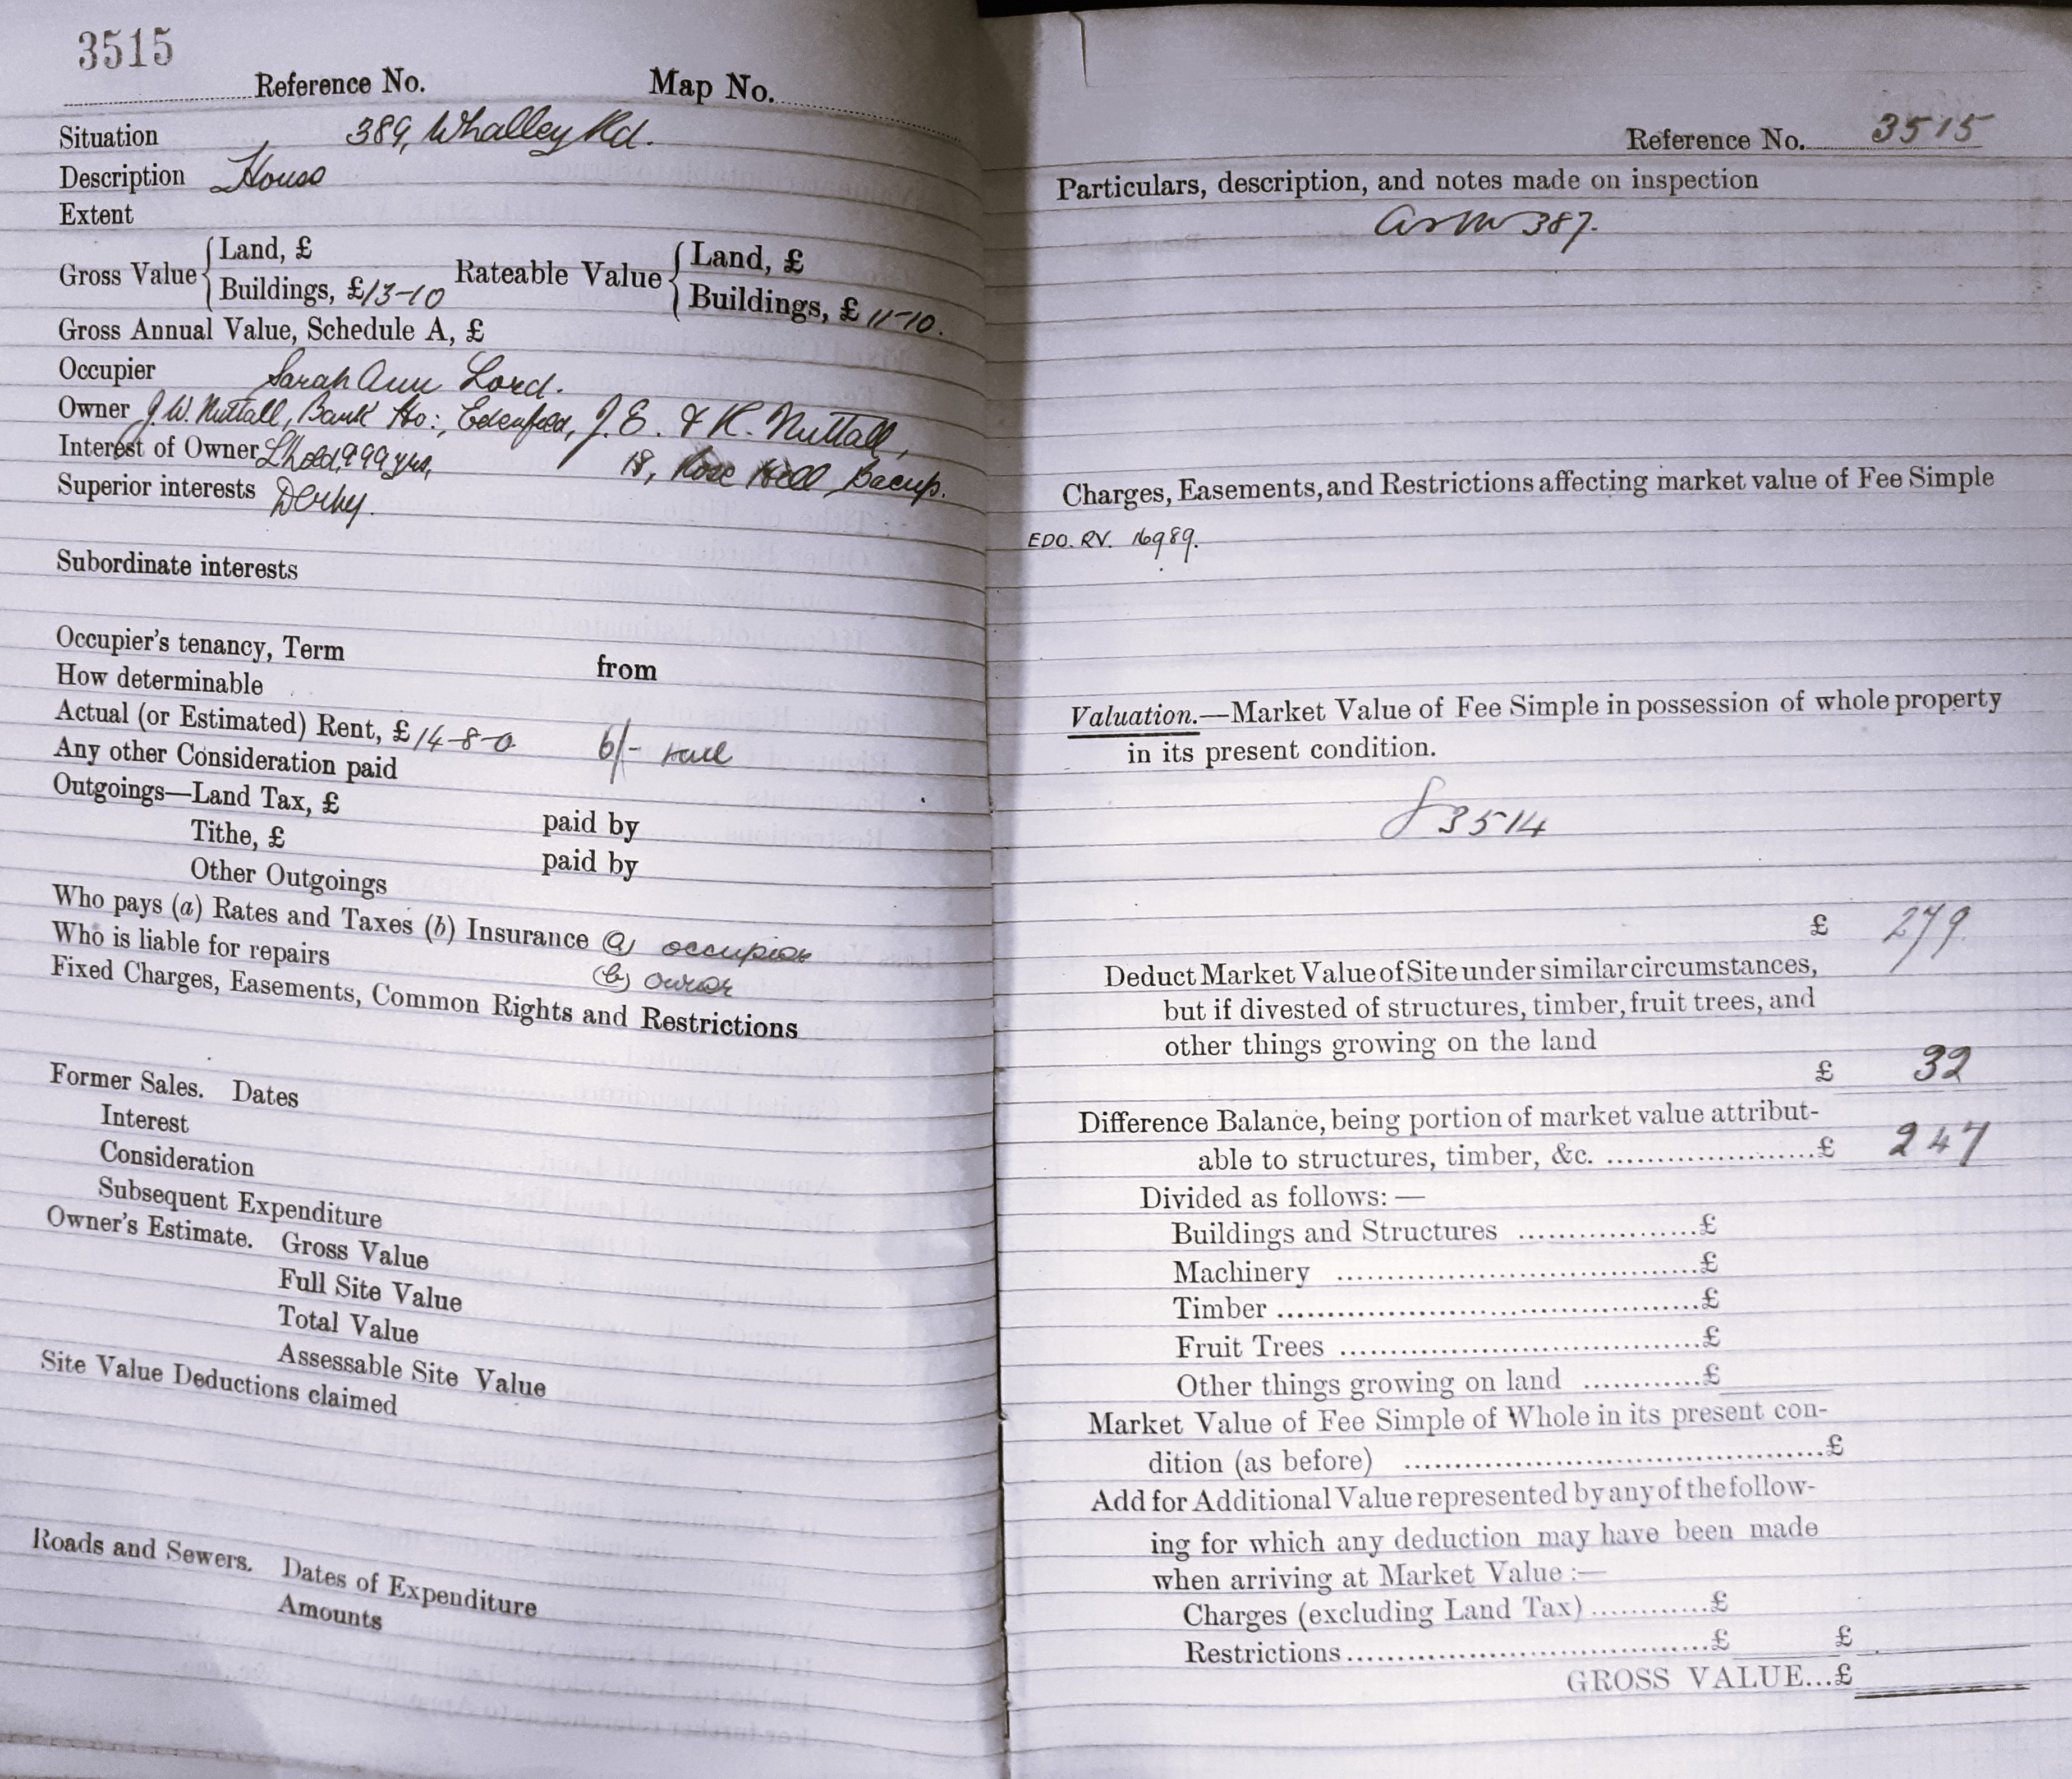 3515
Reference No. Map No.
Situation 389, Whalley Rd.
Description House
Extent
Gross Value { Land, £
Buildings, £13-10
Rateable Value { Land, £
Buildings, £ 11-10.
Gross Annual Value, Schedule A, £
Occupier Sarah Ann Lord.
Owner J. W. Nuttall, Bank Ho:, Edenfield, J. E. & R. Nuttall,
Interest of Owner Lhold, 999 yrs, 18, Rose Hill, Bacup.
Superior interests Derby.
Subordinate interests
Occupier's tenancy, Term from
How determinable
Actual (or Estimated) Rent, £ 14-8-0 6/-
Any other Consideration paid
Outgoings—Land Tax, £ paid by
Tithe, £ paid by
Other Outgoings
Who pays (a) Rates and Taxes (b) Insurance (a) occupier
Who is liable for repairs (b) owner
Fixed Charges, Easements, Common Rights and Restrictions
Former Sales. Dates
Interest
Consideration
Subsequent Expenditure
Owner's Estimate. Gross Value
Full Site Value
Total Value
Assessable Site Value
Site Value Deductions claimed
Roads and Sewers. Dates of Expenditure
Amounts
Reference No. 3515
Particulars, description, and notes made on inspection
387.
Charges, Easements, and Restrictions affecting market value of Fee Simple
EDO. RV. 16989.
Valuation.—Market Value of Fee Simple in possession of whole property
in its present condition.
3514
£ 279
Deduct Market Value of Site under similar circumstances,
but if divested of structures, timber, fruit trees, and
other things growing on the land
£ 32
Difference Balance, being portion of market value attribut-
able to structures, timber, &c. ....................£ 247
Divided as follows: —
Buildings and Structures ..................£
Machinery ....................................£
Timber ..........................................£
Fruit Trees ....................................£
Other things growing on land ............£
Market Value of Fee Simple of Whole in its present con-
dition (as before) ..........................................£
Add for Additional Value represented by any of the follow-
ing for which any deduction may have been made
when arriving at Market Value :—
Charges (excluding Land Tax) ............£
Restrictions....................................£ £
GROSS VALUE...£